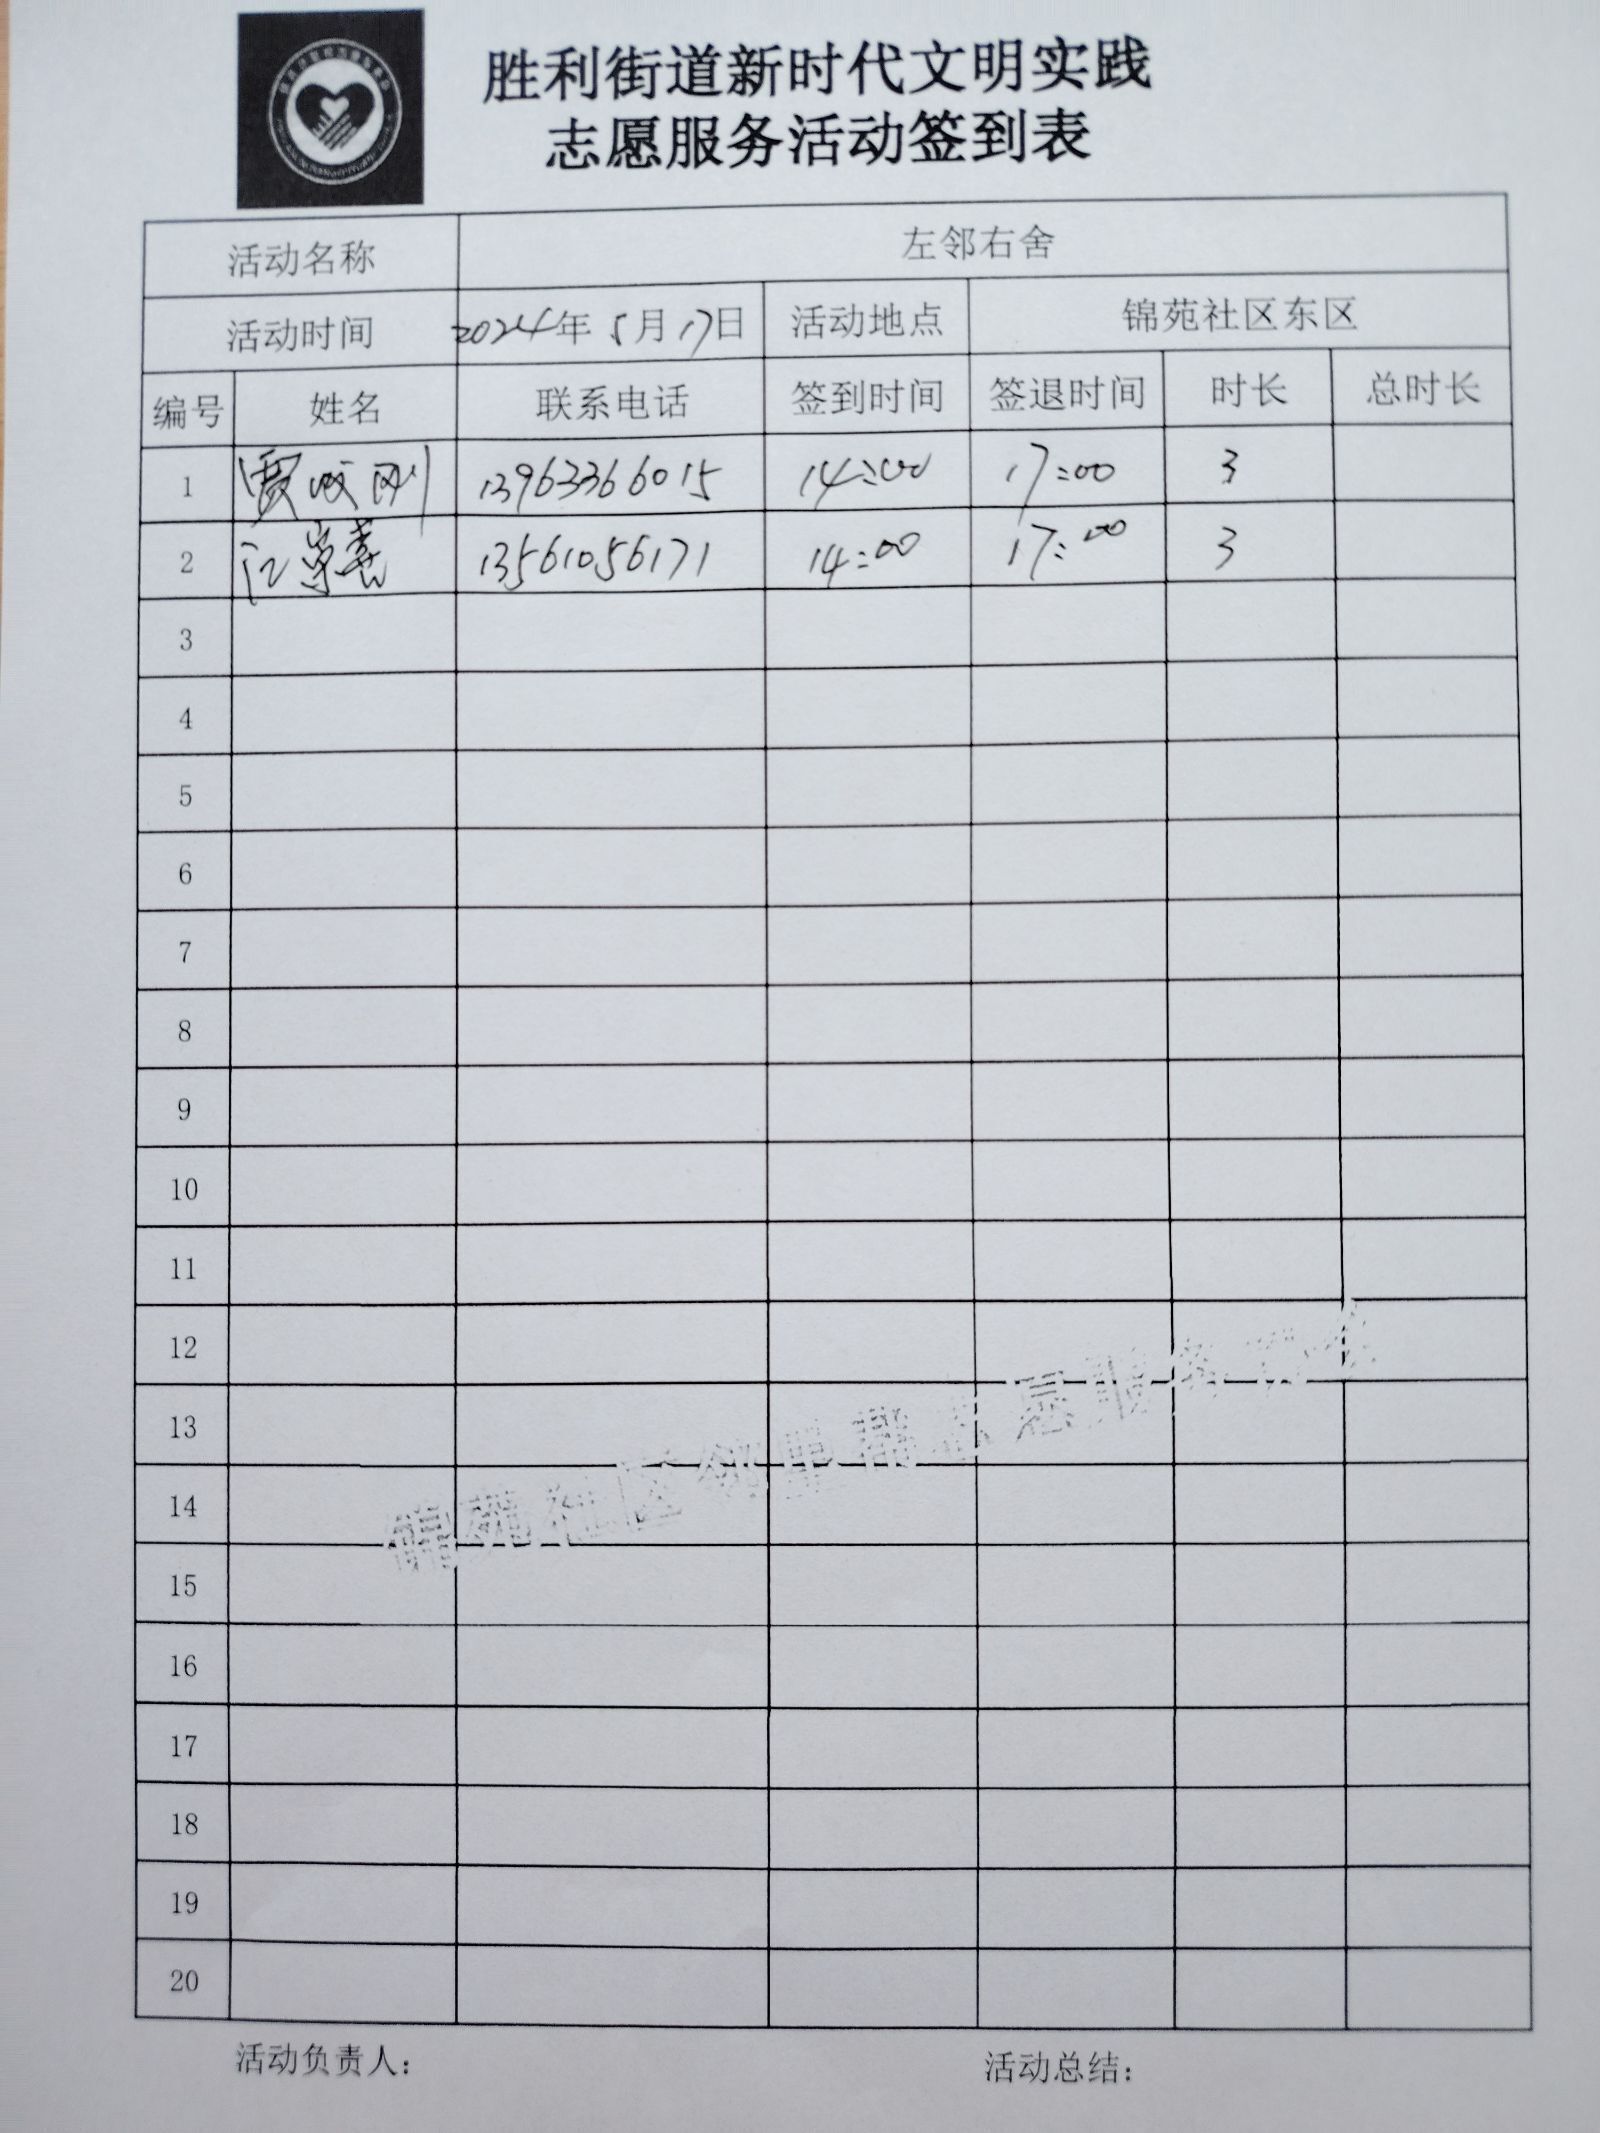 胜利街道新时代文明实践
志愿服务活动签到表
活动名称 左邻右舍
活动时间 2024年5月17日 活动地点 锦苑社区东区
编号 姓名 联系电话 签到时间 签退时间 时长 总时长
1 贾 刚 13963366015 14:00 17:00 3
2 江崇喜 13561056171 14:00 17:00 3
3
4
5
6
7
8
9
10
11
12
13
14
15
16
17
18
19
20
锦苑社区邻里帮志愿服务
活动负责人: 活动总结: